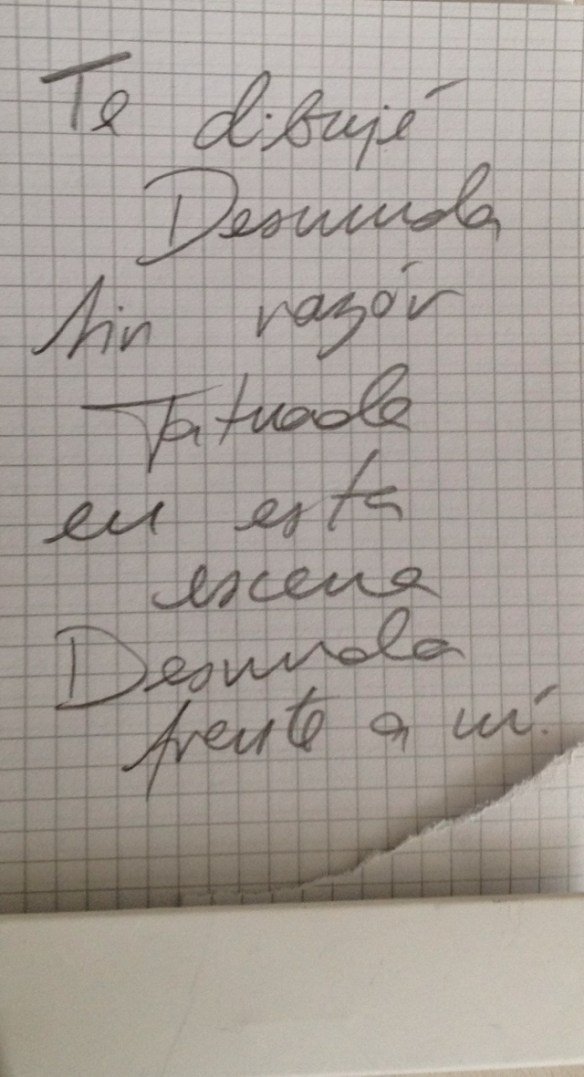 Te dibujé
Desnuda
sin razón
Tatuada
en esta
escena
Desnuda
frente a mí.